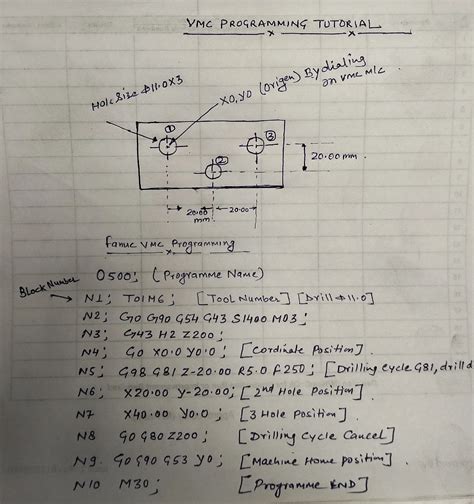 VMC PROGRAMMING TUTORIAL
Hole Size φ11.0X3
X0,Y0 (Origen) By dialing
on VMC M/C
①
②
③
20.00
mm
20.00
20.00 mm
fanuc VMC Programming
O500; (Programme Name)
Block Number
N1; T01M6; [Tool Number] [Drill φ11.0]
N2; G0 G90 G54 G43 S1400 M03;
N3; G43 H2 Z200;
N4; G0 X0.0 Y0.0; [Cordinate Position].
N5; G98 G81 Z-20.00 R5.0 F250; [Drilling Cycle G81, drill d
N6; X20.00 Y-20.00; [2nd Hole Position]
N7 X40.00 Y0.0; [3 Hole Position]
N8 G0 G80 Z200; [Drilling Cycle Cancel]
N9. G0 G90 G53 Y0; [Machine Home position]
N10 M30; [Programme END]